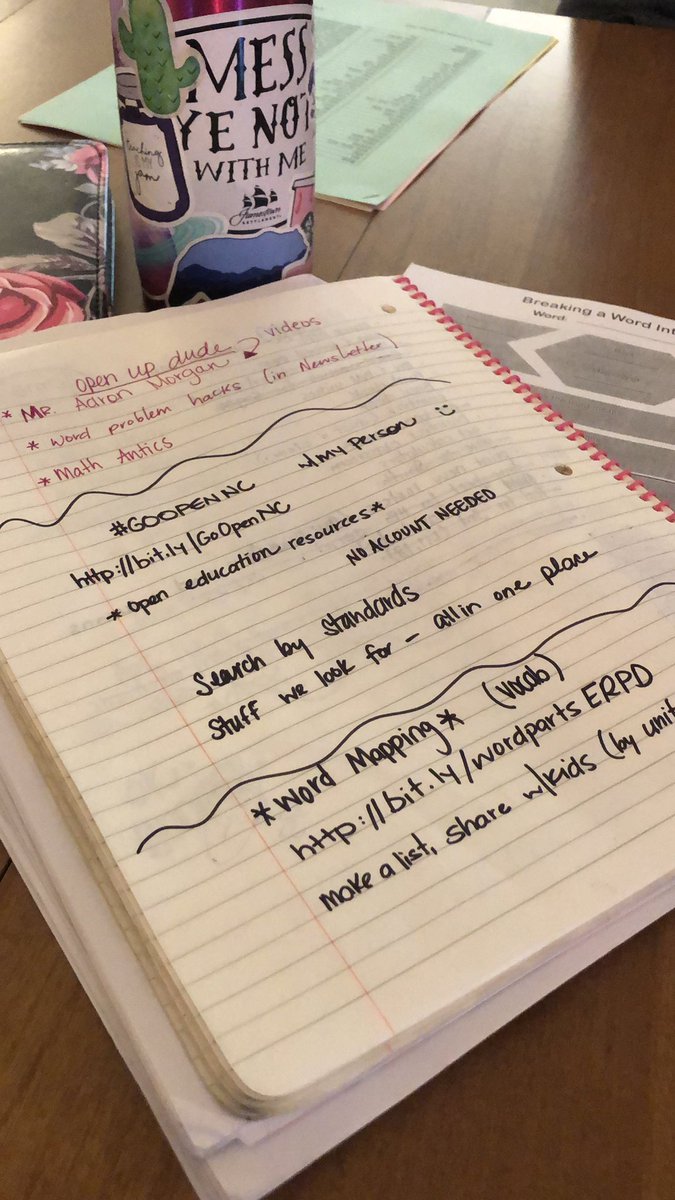 MESS
YE NOT
WITH ME
Jamestown
SETTLEMENT
teaching
is my
jam
Breaking a Word Int
Word:
open up dude videos
* MR. Aaron Morgan
* word problem hacks (in Newsletter)
* Math Antics
#GOOPENNC w/my person
http://bit.ly/GoOpenNC
* open education resources*
NO ACCOUNT NEEDED
Search by standards
Stuff we look for - all in one place
*Word Mapping* (vocab)
http://bit.ly/wordpartsERPD
make a list, share w/kids (by unit